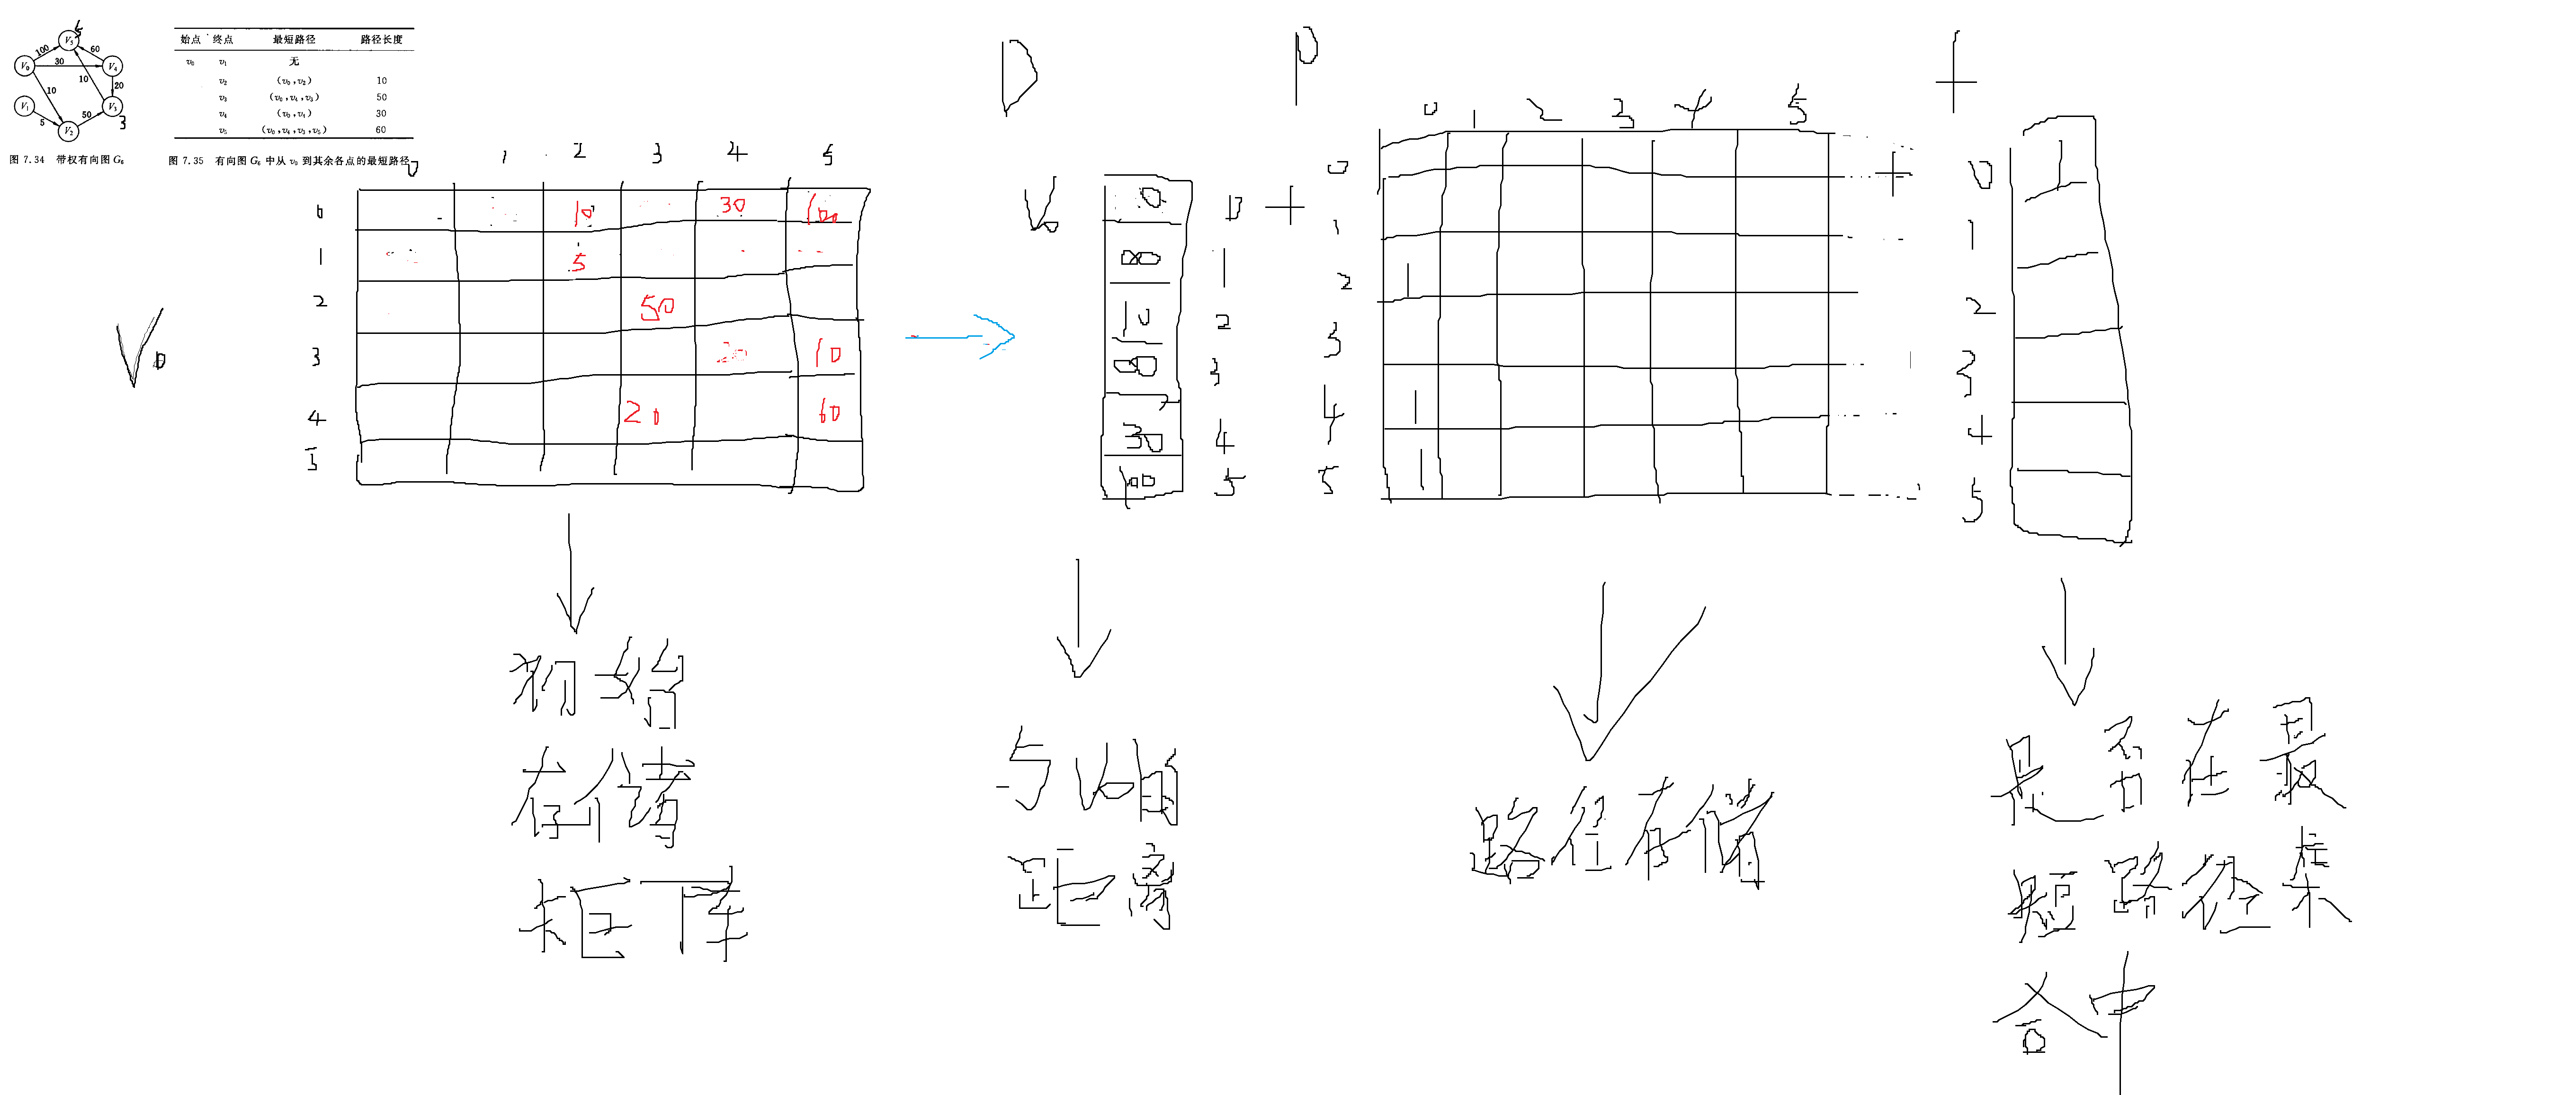 V₅
5
100
60
V₀
30
V₄
10
20
10
V₁
V₃
5
50
3
V₂
图 7.34 带权有向图 G₆
始点 终点 最短路径 路径长度
v₀ v₁ 无
v₂ (v₀,v₂) 10
v₃ (v₀,v₄,v₃) 50
v₄ (v₀,v₄) 30
v₅ (v₀,v₄,v₃,v₅) 60
图 7.35 有向图 G₆ 中从 v₀ 到其余各点的最短路径
V0
0 1 2 3 4 5
0 10 30 100
1 5
2 50
3 10
4 20 60
5
初始
存储
矩阵
D
V0
0 0
∞ 1
10 2
∞ 3
30 4
100 5
与V0的
距离
+
P
0 1 2 3 4 5
0
1
2 1
3
4 1
5 1
路径存储
+
+
0 1
1
2
3
4
5
是否在最
短路径集
合中